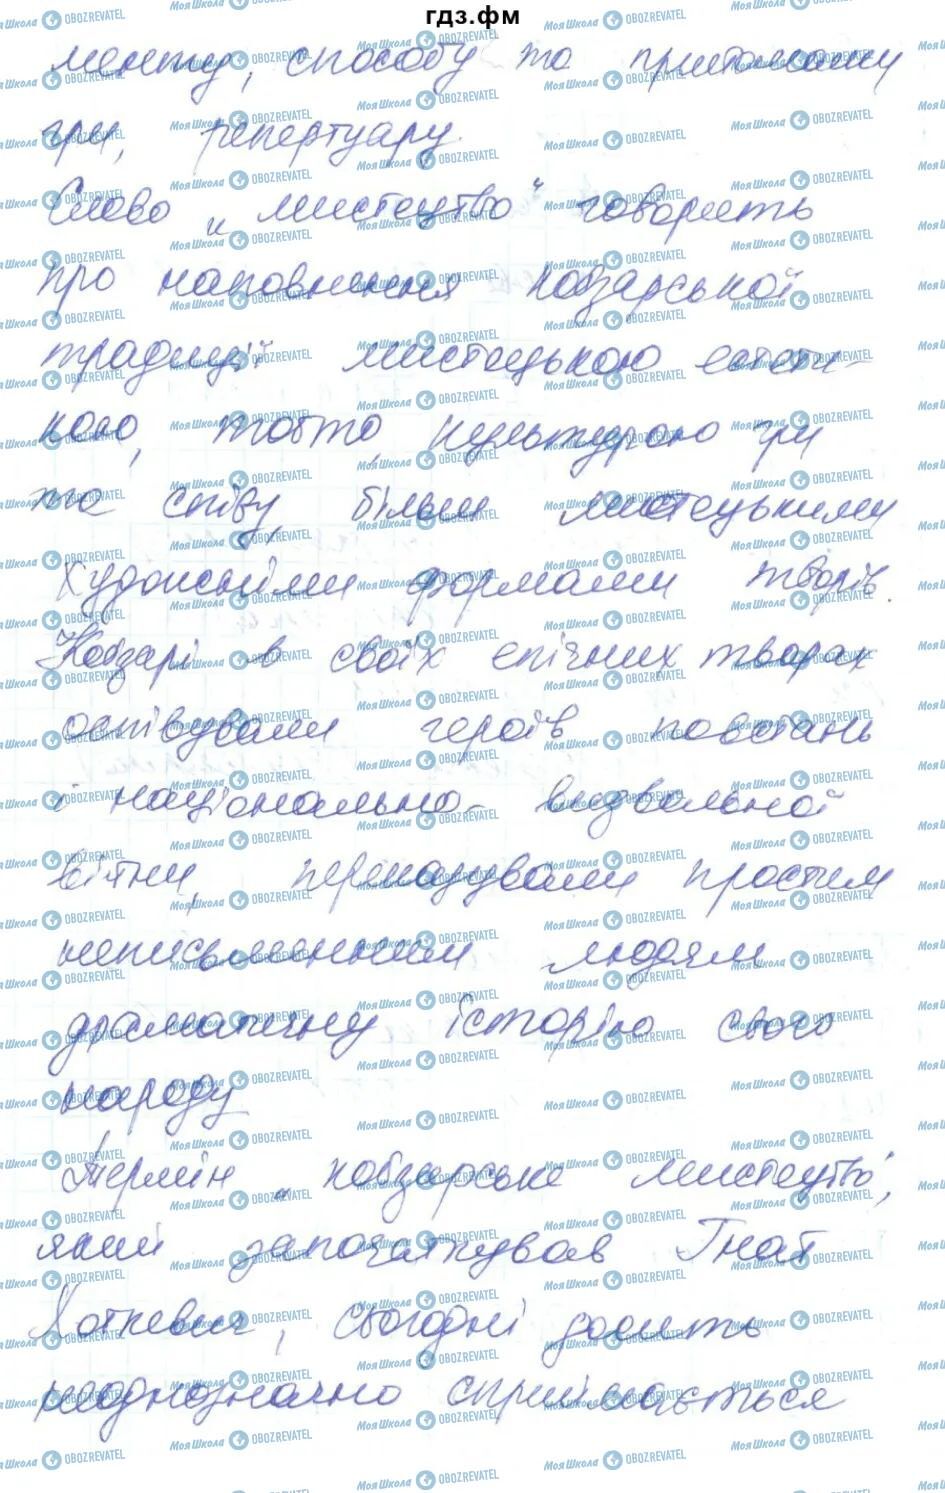 гдз.фм
менту, способу та
гри, репертуару.
Слово "мистецтво" говорить
про наповнення кобзарської
традиції мистецькою естети-
кою, тобто, культурою гри
та співу, більш мистецькими
художніми формами творів.
Кобзарі в своїх епічних творах
оспівували героїв повстань
і національно-визвольної
війни, переказували простим
неписьменним людям
драматичну історію свого
народу
Термін "кобзарське мистецтво",
який започаткував Гнат
Хоткевич, сьогодні досить
неоднозначно сприймається
МояШкола OBOZREVATEL